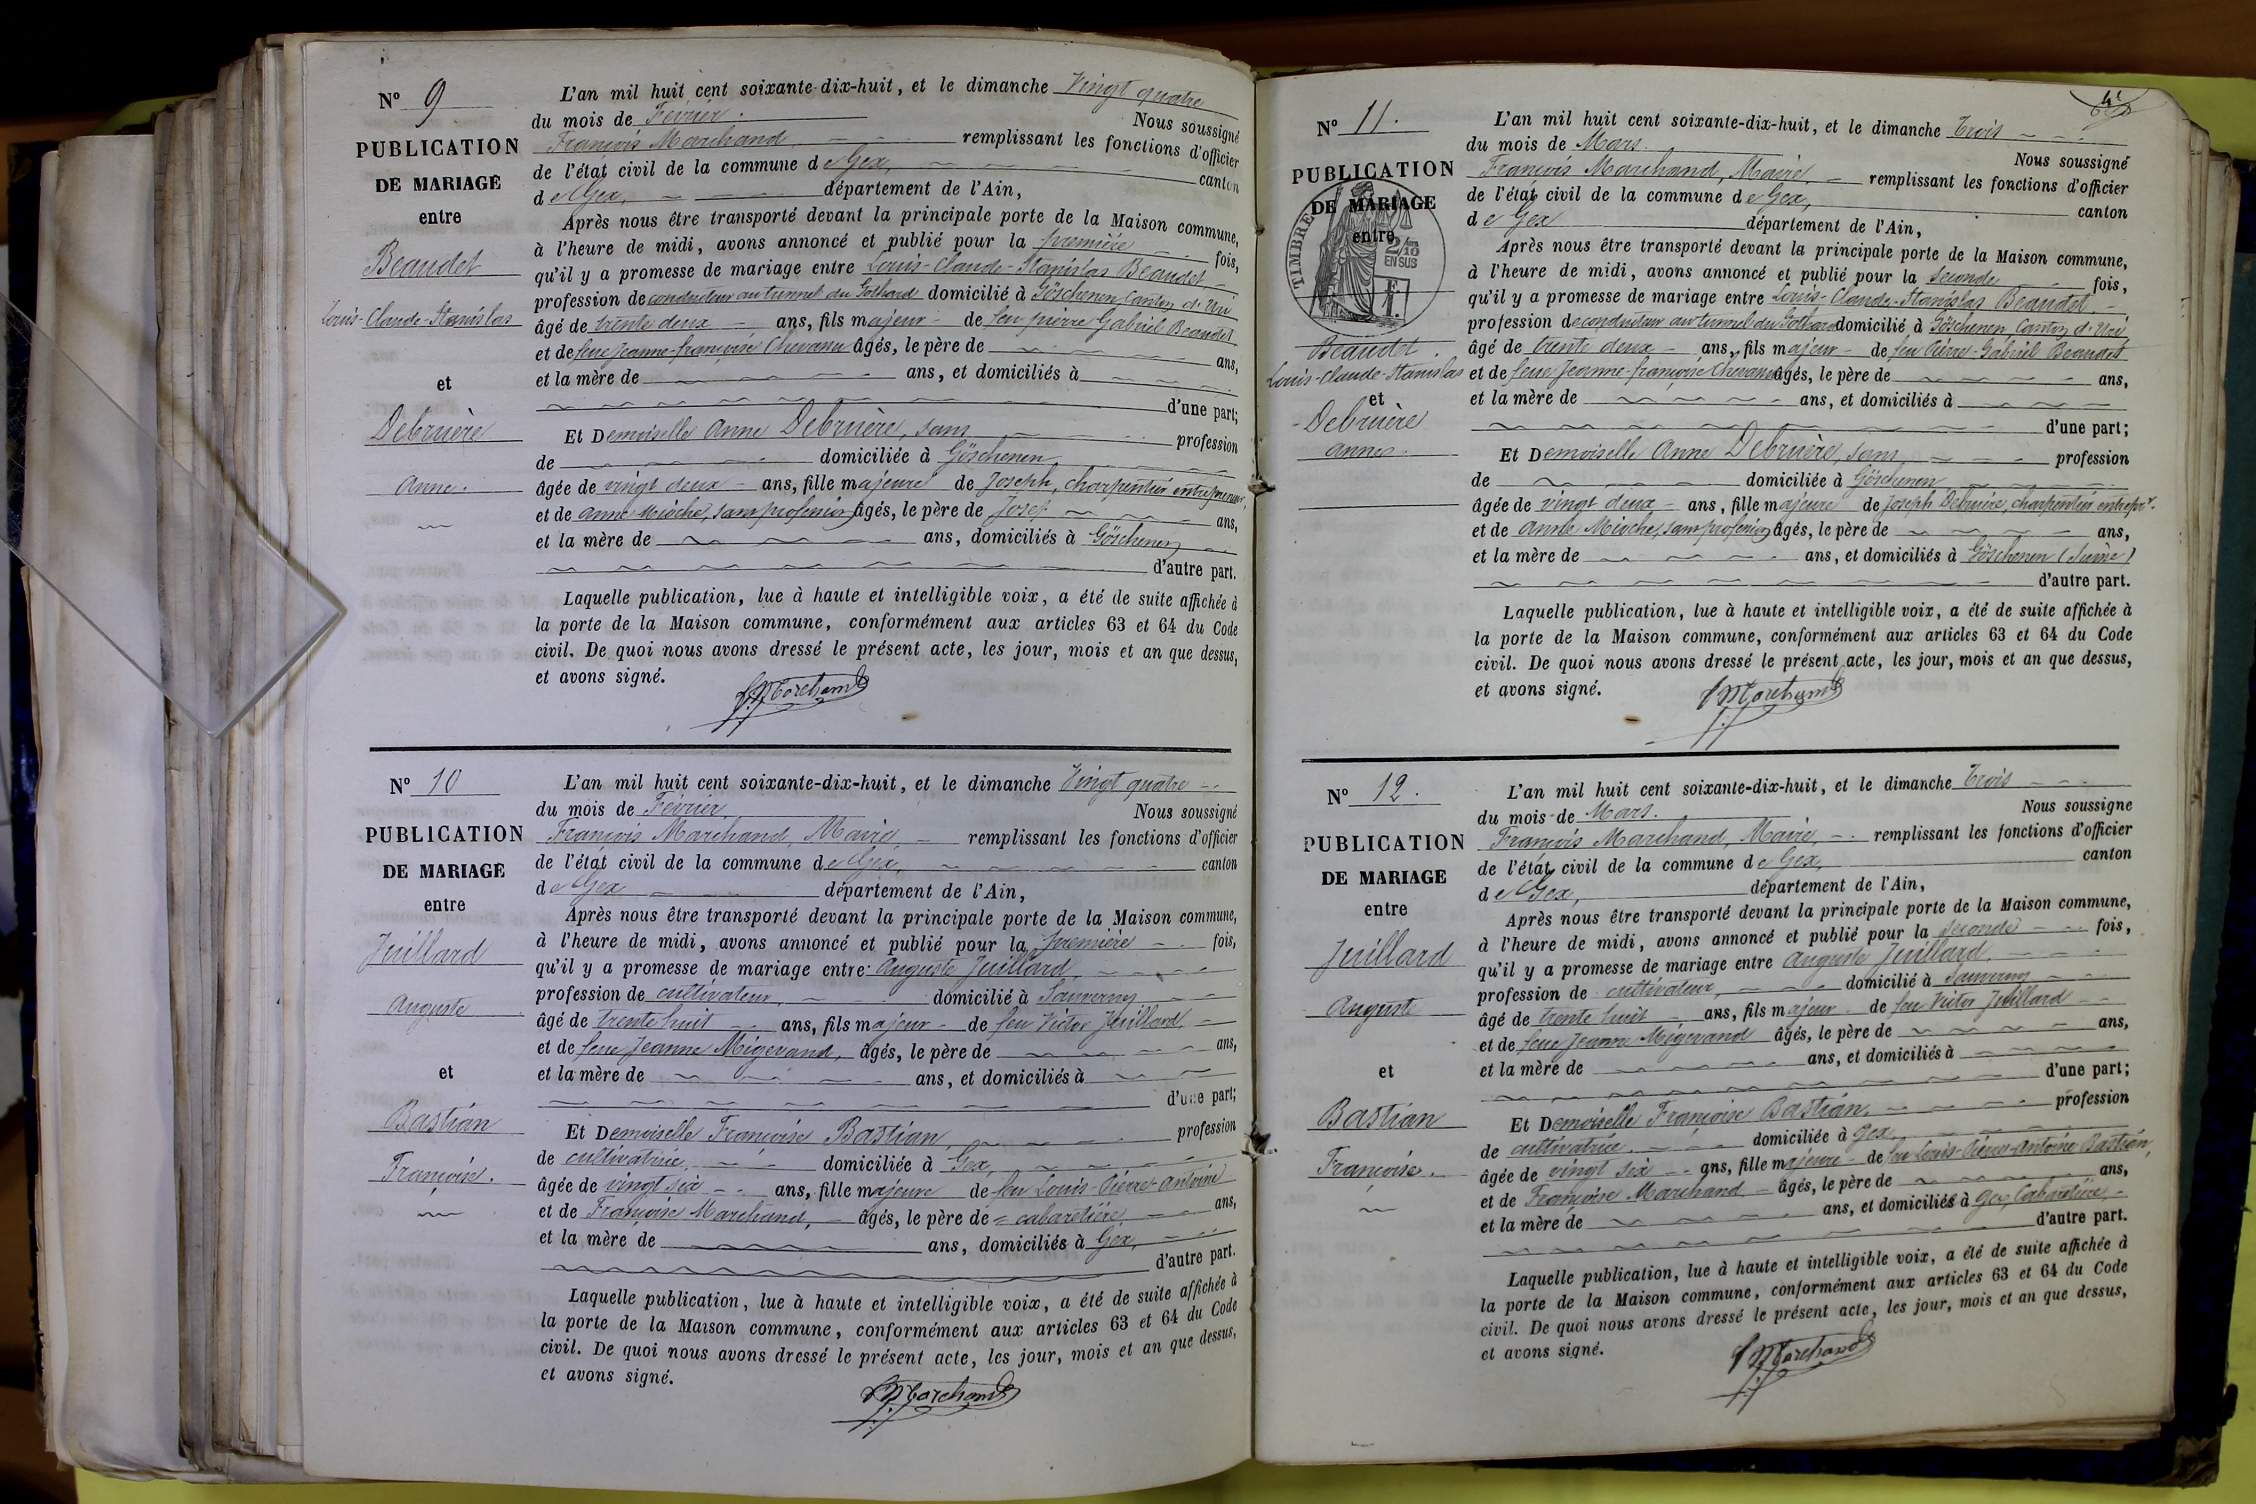 N° 9
PUBLICATION
DE MARIAGE
entre
Beaudet
Louis-Claude-Stanislas
et
Debruère
Anne.
L'an mil huit cent soixante-dix-huit, et le dimanche Vingt quatre
du mois de Février. Nous soussigné
François Marchand remplissant les fonctions d'officier
de l'état civil de la commune de Gex, canton
de Gex, département de l'Ain,
Après nous être transporté devant la principale porte de la Maison commune,
à l'heure de midi, avons annoncé et publié pour la première fois,
qu'il y a promesse de mariage entre Louis-Claude-Stanislas Beaudet
profession de conducteur au tunnel du Gothard domicilié à Göschenen, Canton d'Uri
âgé de trente deux ans, fils majeur de feu pierre Gabriel Beaudet
et de feue Jeanne-françoise Chevanu âgés, le père de ans,
et la mère de ans, et domiciliés à
d'une part;
Et Demoiselle Anne Debruère, sans profession
de domiciliée à Göschenen
âgée de vingt deux ans, fille majeure de Joseph, charpentier entrepreneur,
et de Anne Mioche, sans profession âgés, le père de Josef ans,
et la mère de ans, domiciliés à Göschenen
d'autre part.
Laquelle publication, lue à haute et intelligible voix, a été de suite affichée à
la porte de la Maison commune, conformément aux articles 63 et 64 du Code
civil. De quoi nous avons dressé le présent acte, les jour, mois et an que dessus,
et avons signé.
F. Marchand
N° 10
PUBLICATION
DE MARIAGE
entre
Juillard
Auguste
et
Bastian
Françoise.
L'an mil huit cent soixante-dix-huit, et le dimanche Vingt quatre
du mois de Février Nous soussigné
François Marchand, Maire, remplissant les fonctions d'officier
de l'état civil de la commune de Gex, canton
de Gex département de l'Ain,
Après nous être transporté devant la principale porte de la Maison commune,
à l'heure de midi, avons annoncé et publié pour la première fois,
qu'il y a promesse de mariage entre Auguste Juillard,
profession de cultivateur, domicilié à Sauverny
âgé de trente huit ans, fils majeur de feu Victor Juillard
et de feue Jeanne Migevand, âgés, le père de ans,
et la mère de ans, et domiciliés à
d'une part;
Et Demoiselle Françoise Bastian, profession
de cultivatrice, domiciliée à Gex,
âgée de vingt six ans, fille majeure de feu Louis-Pierre-Antoine
et de Françoise Marchand, âgés, le père de = cabaretière ans,
et la mère de ans, domiciliés à Gex,
d'autre part.
Laquelle publication, lue à haute et intelligible voix, a été de suite affichée à
la porte de la Maison commune, conformément aux articles 63 et 64 du Code
civil. De quoi nous avons dressé le présent acte, les jour, mois et an que dessus,
et avons signé.
F. Marchand
N° 11.
PUBLICATION
DE MARIAGE
entre
TIMBRE
2/10
EN SUS
Beaudet.
Louis-Claude-Stanislas
et
Debruère
Anne.
L'an mil huit cent soixante-dix-huit, et le dimanche Trois
du mois de Mars. Nous soussigné
François Marchand, Maire, remplissant les fonctions d'officier
de l'état civil de la commune de Gex, canton
de Gex département de l'Ain,
Après nous être transporté devant la principale porte de la Maison commune,
à l'heure de midi, avons annoncé et publié pour la seconde fois,
qu'il y a promesse de mariage entre Louis-Claude-Stanislas Beaudet
profession de conducteur au tunnel du Gothard domicilié à Göschenen Canton d'Uri
âgé de trente deux ans, fils majeur de feu Pierre-Gabriel Beaudet
et de feue Jeanne-françoise Chevanu âgés, le père de ans,
et la mère de ans, et domiciliés à
d'une part;
Et Demoiselle Anne Debruère, sans profession
de domiciliée à Göschenen
âgée de vingt deux ans, fille majeure de Joseph Debruère, charpentier entrepr.
et de Anne Mioche, sans profession âgés, le père de ans,
et la mère de ans, et domiciliés à Göschenen (Suisse)
d'autre part.
Laquelle publication, lue à haute et intelligible voix, a été de suite affichée à
la porte de la Maison commune, conformément aux articles 63 et 64 du Code
civil. De quoi nous avons dressé le présent acte, les jour, mois et an que dessus,
et avons signé.
F. Marchand
N° 12.
PUBLICATION
DE MARIAGE
entre
Juillard
Auguste
et
Bastian
Françoise.
L'an mil huit cent soixante-dix-huit, et le dimanche Trois
du mois de Mars. Nous soussigné
François Marchand, Maire, remplissant les fonctions d'officier
de l'état civil de la commune de Gex, canton
de Gex, département de l'Ain,
Après nous être transporté devant la principale porte de la Maison commune,
à l'heure de midi, avons annoncé et publié pour la seconde fois,
qu'il y a promesse de mariage entre Auguste Juillard,
profession de cultivateur, domicilié à Sauverny
âgé de trente huit ans, fils majeur de feu Victor Juillard
et de feue Jeanne Migevand âgés, le père de ans,
et la mère de ans, et domiciliés à
d'une part;
Et Demoiselle Françoise Bastian, profession
de cultivatrice, domiciliée à Gex
âgée de vingt six ans, fille majeure de feu Louis-Pierre-Antoine Bastian,
et de Françoise Marchand âgés, le père de ans,
et la mère de ans, et domiciliés à Gex, Cabaretière,
d'autre part.
Laquelle publication, lue à haute et intelligible voix, a été de suite affichée à
la porte de la Maison commune, conformément aux articles 63 et 64 du Code
civil. De quoi nous avons dressé le présent acte, les jour, mois et an que dessus,
et avons signé.
F. Marchand